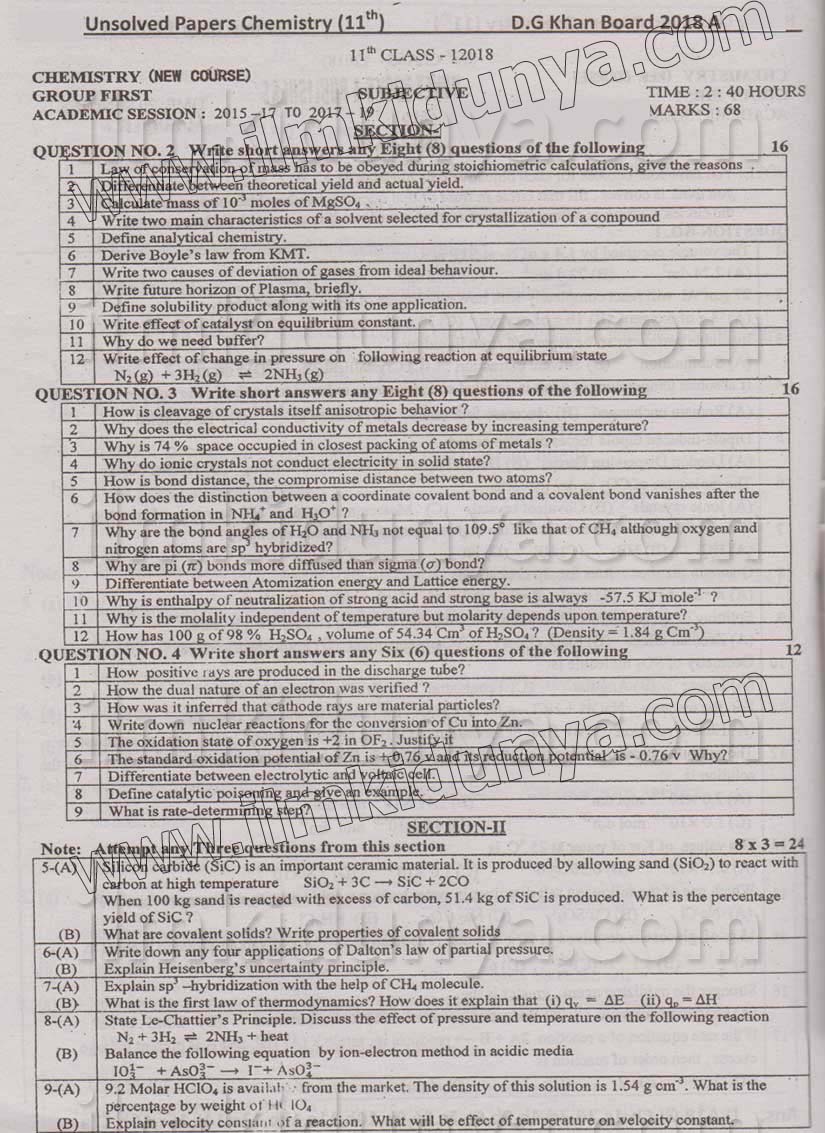 Unsolved Papers Chemistry (11th) D.G Khan Board 2018 A
11th CLASS - 12018
CHEMISTRY (NEW COURSE)
GROUP FIRST SUBJECTIVE TIME : 2 : 40 HOURS
ACADEMIC SESSION : 2015 -17 TO 2017 - 19 MARKS : 68
SECTION-I
QUESTION NO. 2 Write short answers any Eight (8) questions of the following 16
1 Law of conservation of mass has to be obeyed during stoichiometric calculations, give the reasons .
2 Differentiate between theoretical yield and actual yield.
3 Calculate mass of 10⁻³ moles of MgSO₄ .
4 Write two main characteristics of a solvent selected for crystallization of a compound
5 Define analytical chemistry.
6 Derive Boyle's law from KMT.
7 Write two causes of deviation of gases from ideal behaviour.
8 Write future horizon of Plasma, briefly.
9 Define solubility product along with its one application.
10 Write effect of catalyst on equilibrium constant.
11 Why do we need buffer?
12 Write effect of change in pressure on following reaction at equilibrium state
N₂ (g) + 3H₂ (g) ⇌ 2NH₃ (g)
QUESTION NO. 3 Write short answers any Eight (8) questions of the following 16
1 How is cleavage of crystals itself anisotropic behavior ?
2 Why does the electrical conductivity of metals decrease by increasing temperature?
3 Why is 74 % space occupied in closest packing of atoms of metals ?
4 Why do ionic crystals not conduct electricity in solid state?
5 How is bond distance, the compromise distance between two atoms?
6 How does the distinction between a coordinate covalent bond and a covalent bond vanishes after the
bond formation in NH₄⁺ and H₃O⁺ ?
7 Why are the bond angles of H₂O and NH₃ not equal to 109.5° like that of CH₄ although oxygen and
nitrogen atoms are sp³ hybridized?
8 Why are pi (π) bonds more diffused than sigma (σ) bond?
9 Differentiate between Atomization energy and Lattice energy.
10 Why is enthalpy of neutralization of strong acid and strong base is always -57.5 KJ mole⁻¹ ?
11 Why is the molality independent of temperature but molarity depends upon temperature?
12 How has 100 g of 98 % H₂SO₄ , volume of 54.34 Cm³ of H₂SO₄ ? (Density = 1.84 g Cm⁻³)
QUESTION NO. 4 Write short answers any Six (6) questions of the following 12
1 How positive rays are produced in the discharge tube?
2 How the dual nature of an electron was verified ?
3 How was it inferred that cathode rays are material particles?
4 Write down nuclear reactions for the conversion of Cu into Zn.
5 The oxidation state of oxygen is +2 in OF₂ . Justify it
6 The standard oxidation potential of Zn is + 0.76 v and its reduction potential is - 0.76 v Why?
7 Differentiate between electrolytic and voltaic cell.
8 Define catalytic poisoning and give an example.
9 What is rate-determining step?
SECTION-II
Note: Attempt any Three questions from this section 8 x 3 = 24
5-(A) Silicon carbide (SiC) is an important ceramic material. It is produced by allowing sand (SiO₂) to react with
carbon at high temperature SiO₂ + 3C ⟶ SiC + 2CO
When 100 kg sand is reacted with excess of carbon, 51.4 kg of SiC is produced. What is the percentage
yield of SiC ?
(B) What are covalent solids? Write properties of covalent solids
6-(A) Write down any four applications of Dalton's law of partial pressure.
(B) Explain Heisenberg's uncertainty principle.
7-(A) Explain sp³ –hybridization with the help of CH₄ molecule.
(B) What is the first law of thermodynamics? How does it explain that (i) qᵥ = ΔE (ii) qₚ = ΔH
8-(A) State Le-Chattier's Principle. Discuss the effect of pressure and temperature on the following reaction
N₂ + 3H₂ ⇌ 2NH₃ + heat
(B) Balance the following equation by ion-electron method in acidic media
IO₃¹⁻ + AsO₃³⁻ ⟶ I⁻ + AsO₄³⁻
9-(A) 9.2 Molar HClO₄ is available from the market. The density of this solution is 1.54 g cm⁻³. What is the
percentage by weight of HClO₄
(B) Explain velocity constant of a reaction. What will be effect of temperature on velocity constant.
www.ilmkidunya.com
www.ilmkidunya.com
ilmkidunya.com
ilmkidunya.com
ilmkidunya.com
ilmkidunya.com